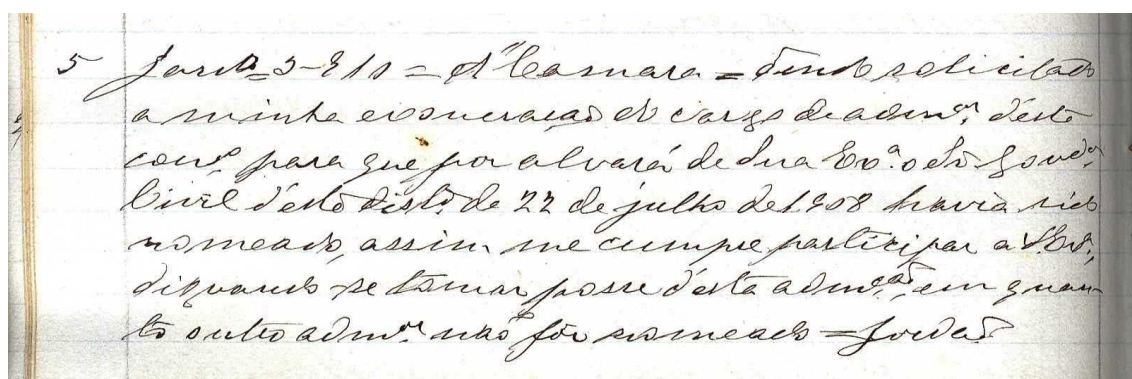 5 Jan.ro = 5-910 = Á Camara = Tendo solicitado
a minha exoneração do cargo de adm.or d'este
conc.o para que por alvará de Sua Ex.a o Sr. Gov.or
Civil d'este dist.o de 22 de julho de 1908 havia sido
nomeado, assim me cumpre participar a V. Ex.a,
dignando-se tomar posse d'esta adm.ção, em quan-
to outro adm.or não fôr nomeado = Jordão